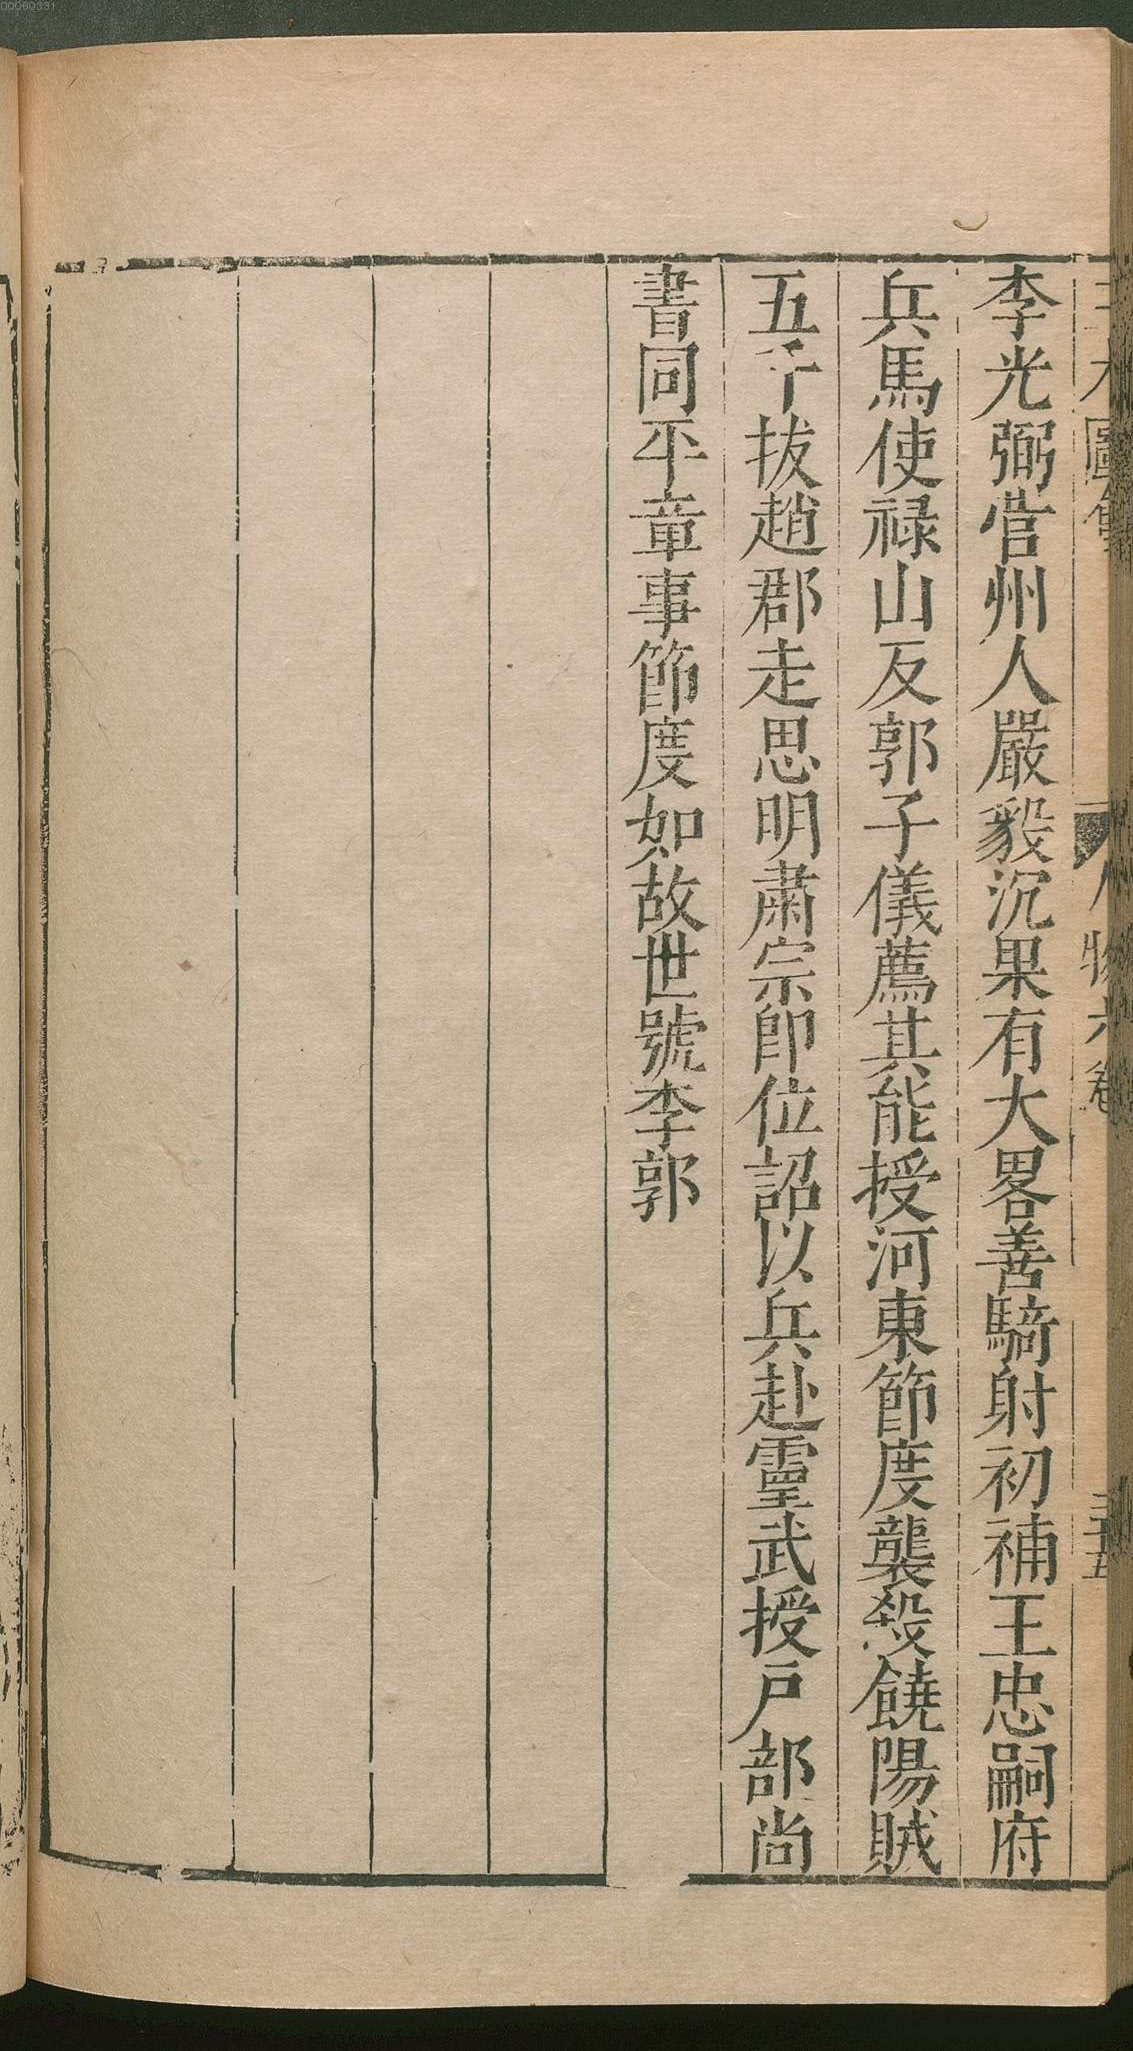 李光弼營州人嚴毅沉果有大畧善騎射初補王忠嗣府
兵馬使祿山反郭子儀薦其能授河東節度襲殺饒陽賊
五千拔趙郡走思明肅宗即位詔以兵赴靈武授戶部尚
書同平章事節度如故世號李郭
00060331